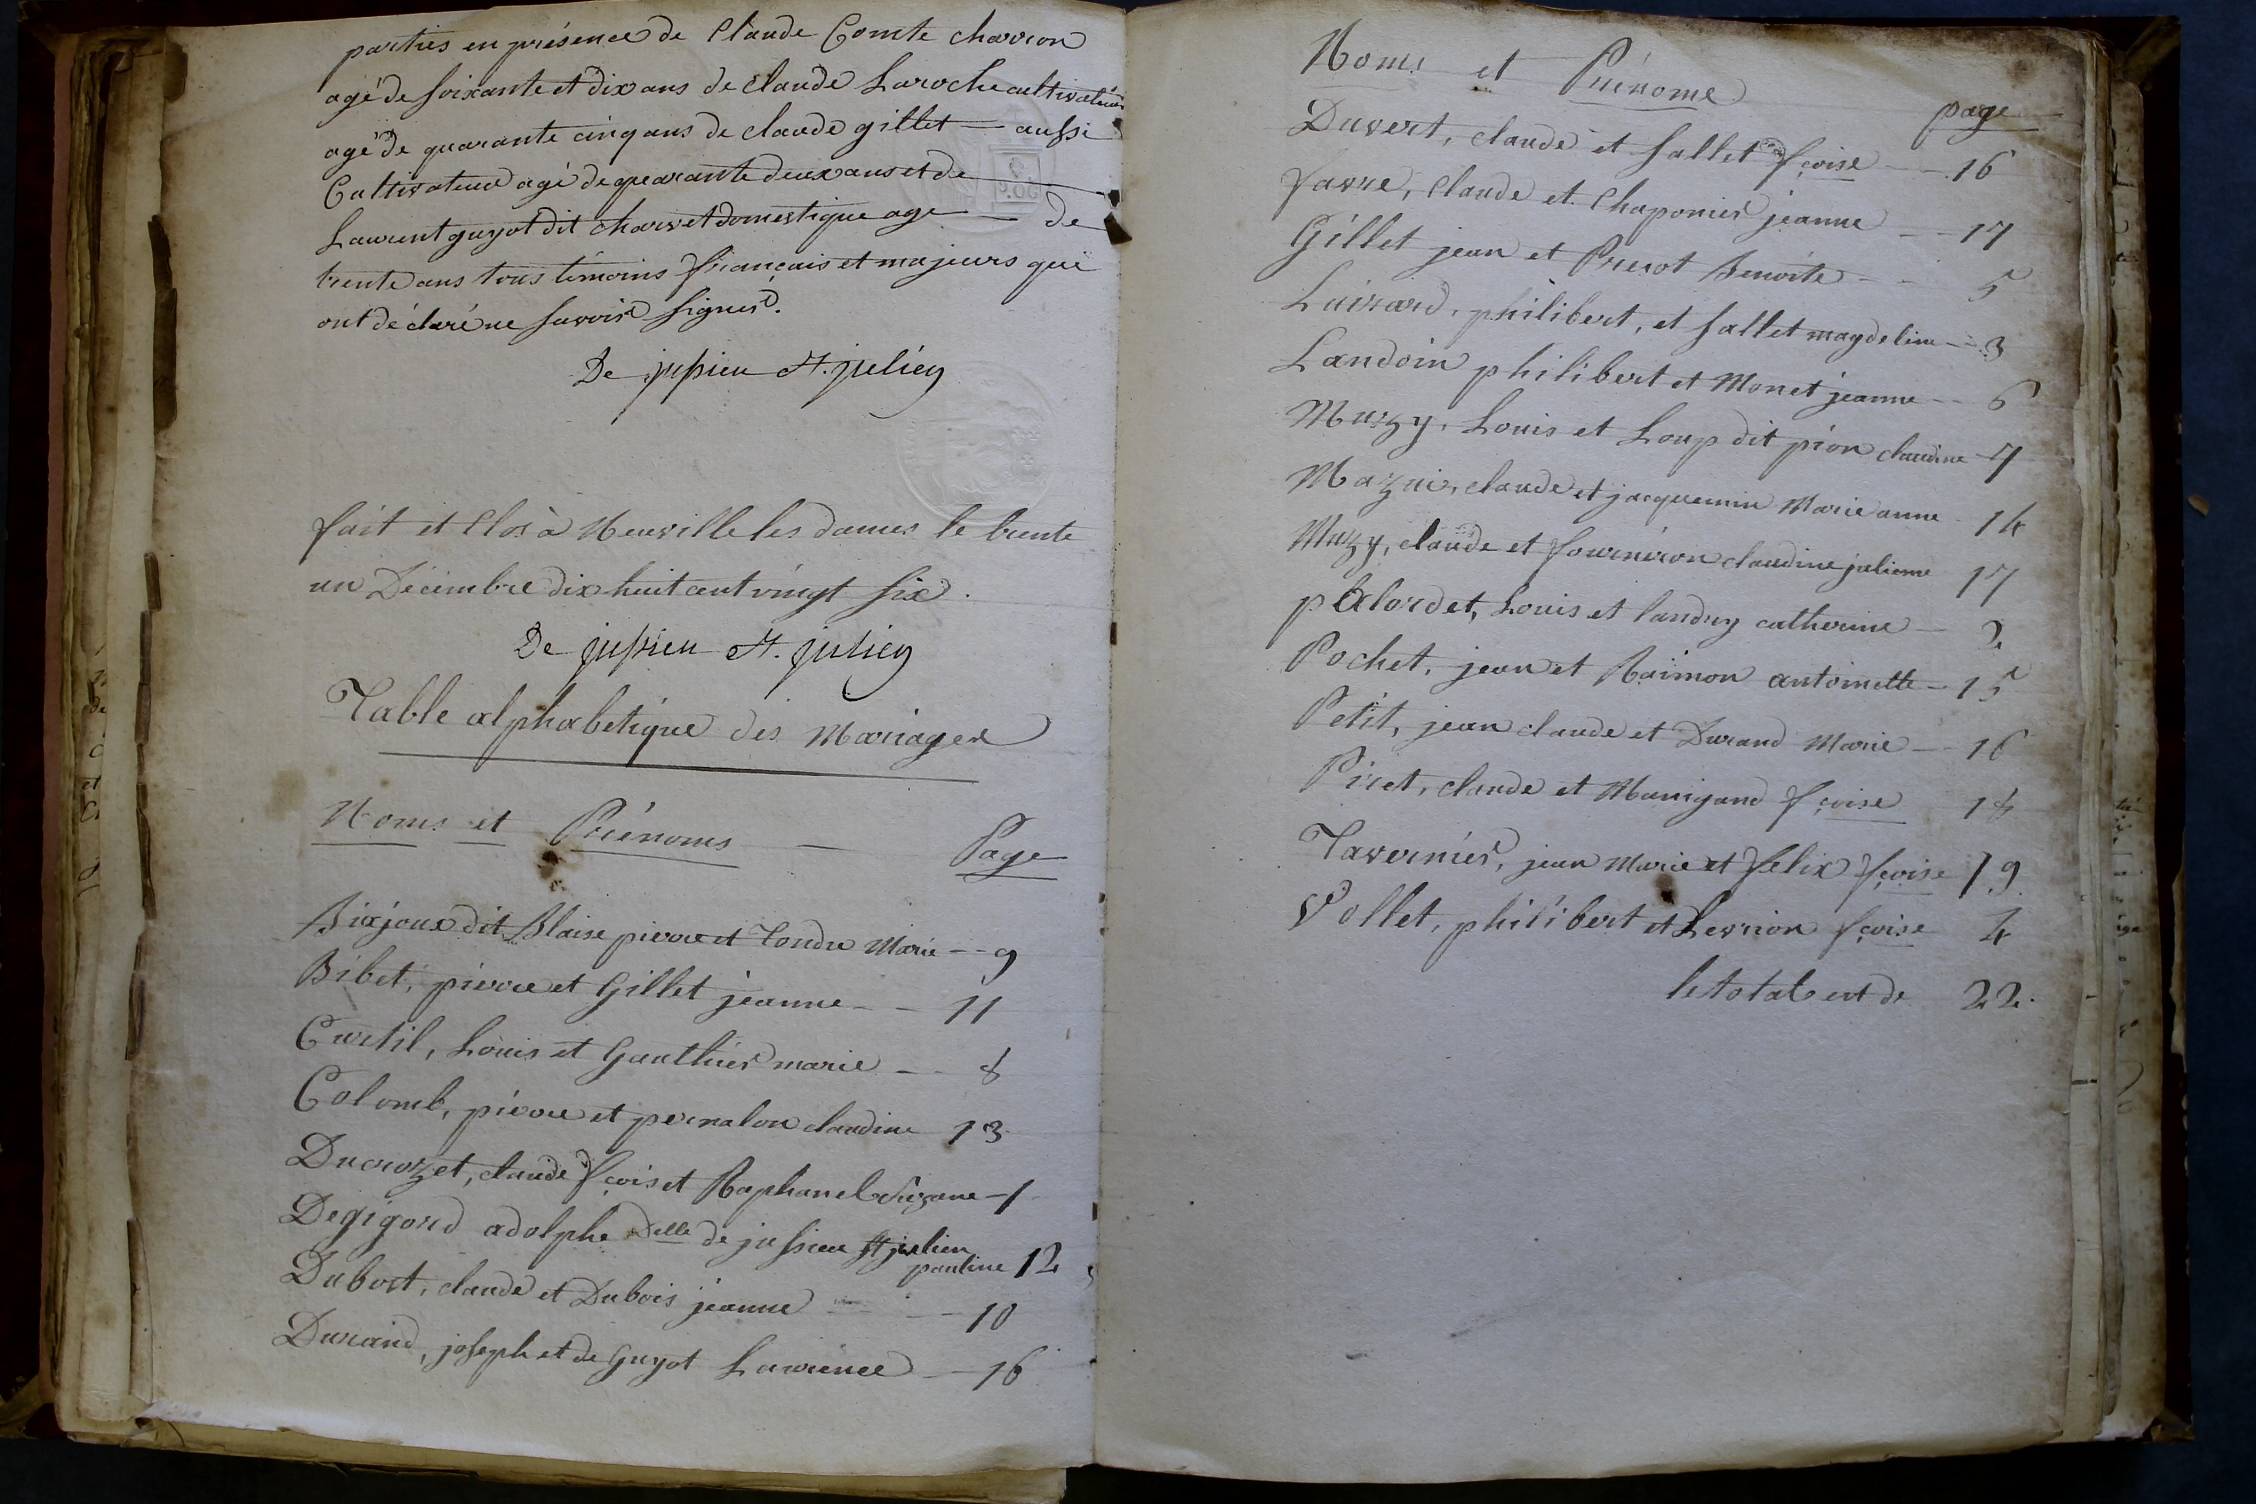 parties en présence de Claude Comte charron
agé de soixante et dix ans de claude Laroche cultivateur
agé de quarante cinq ans de claude gillet — aussi
Cultivateur agé de quarante deux ans et de
Laurent guyot dit charvet domestique age — de
trente ans tous témoins français et majeurs qui
ont déclaré ne savoir signer.
De jussieu St. julien
fait et Clos à Neuville les dames le trente
un Décembre dix huit cent vingt six.
De jussieu St. julien
Table alphabetique des Mariages
Noms et Prénoms — Page
Biajoux dit Blaise pierre et Tondu Marie — 9
Bibet, pierre et Gillet jeanne — 11
Curtil, Louis et Gauthier marie — 8
Colomb, pierre et pernalon claudine 13
Ducrozet, claude fçois et Raphanel Suzane — 1
Degigord adolphe Delle de jussieu St julien
pauline 12
Dubost, claude et Dubois jeanne — 10
Durand, joseph et de Guyot Laurence — 16
Noms et Prénoms
page
Duvert, claude et Sallet fçoise — 16
favre, Claude et Chaponier jeanne — 17
Gillet jean et Prevot Benoite — 5
Luizard, philibert, et Sallet magdeline — 3
Landoin philibert et Monet jeanne — 6
Muzy, Louis et Loup dit pion claudine — 7
Mazui, claude et jacquemin Marie anne 14
Muzy, claude et fourniron claudine julienne 17
pélordet, Louis et landry catherine — 2
Pochet, jean et Raimon antoinette — 15
Petit, jean claude et Durand Marie — 16
Piret, claude et Manigand fçoise 18
Tavernier, jean Marie et felix fçoise 19
Vollet, philibert et Levrion fçoise 4
le total est de 22.